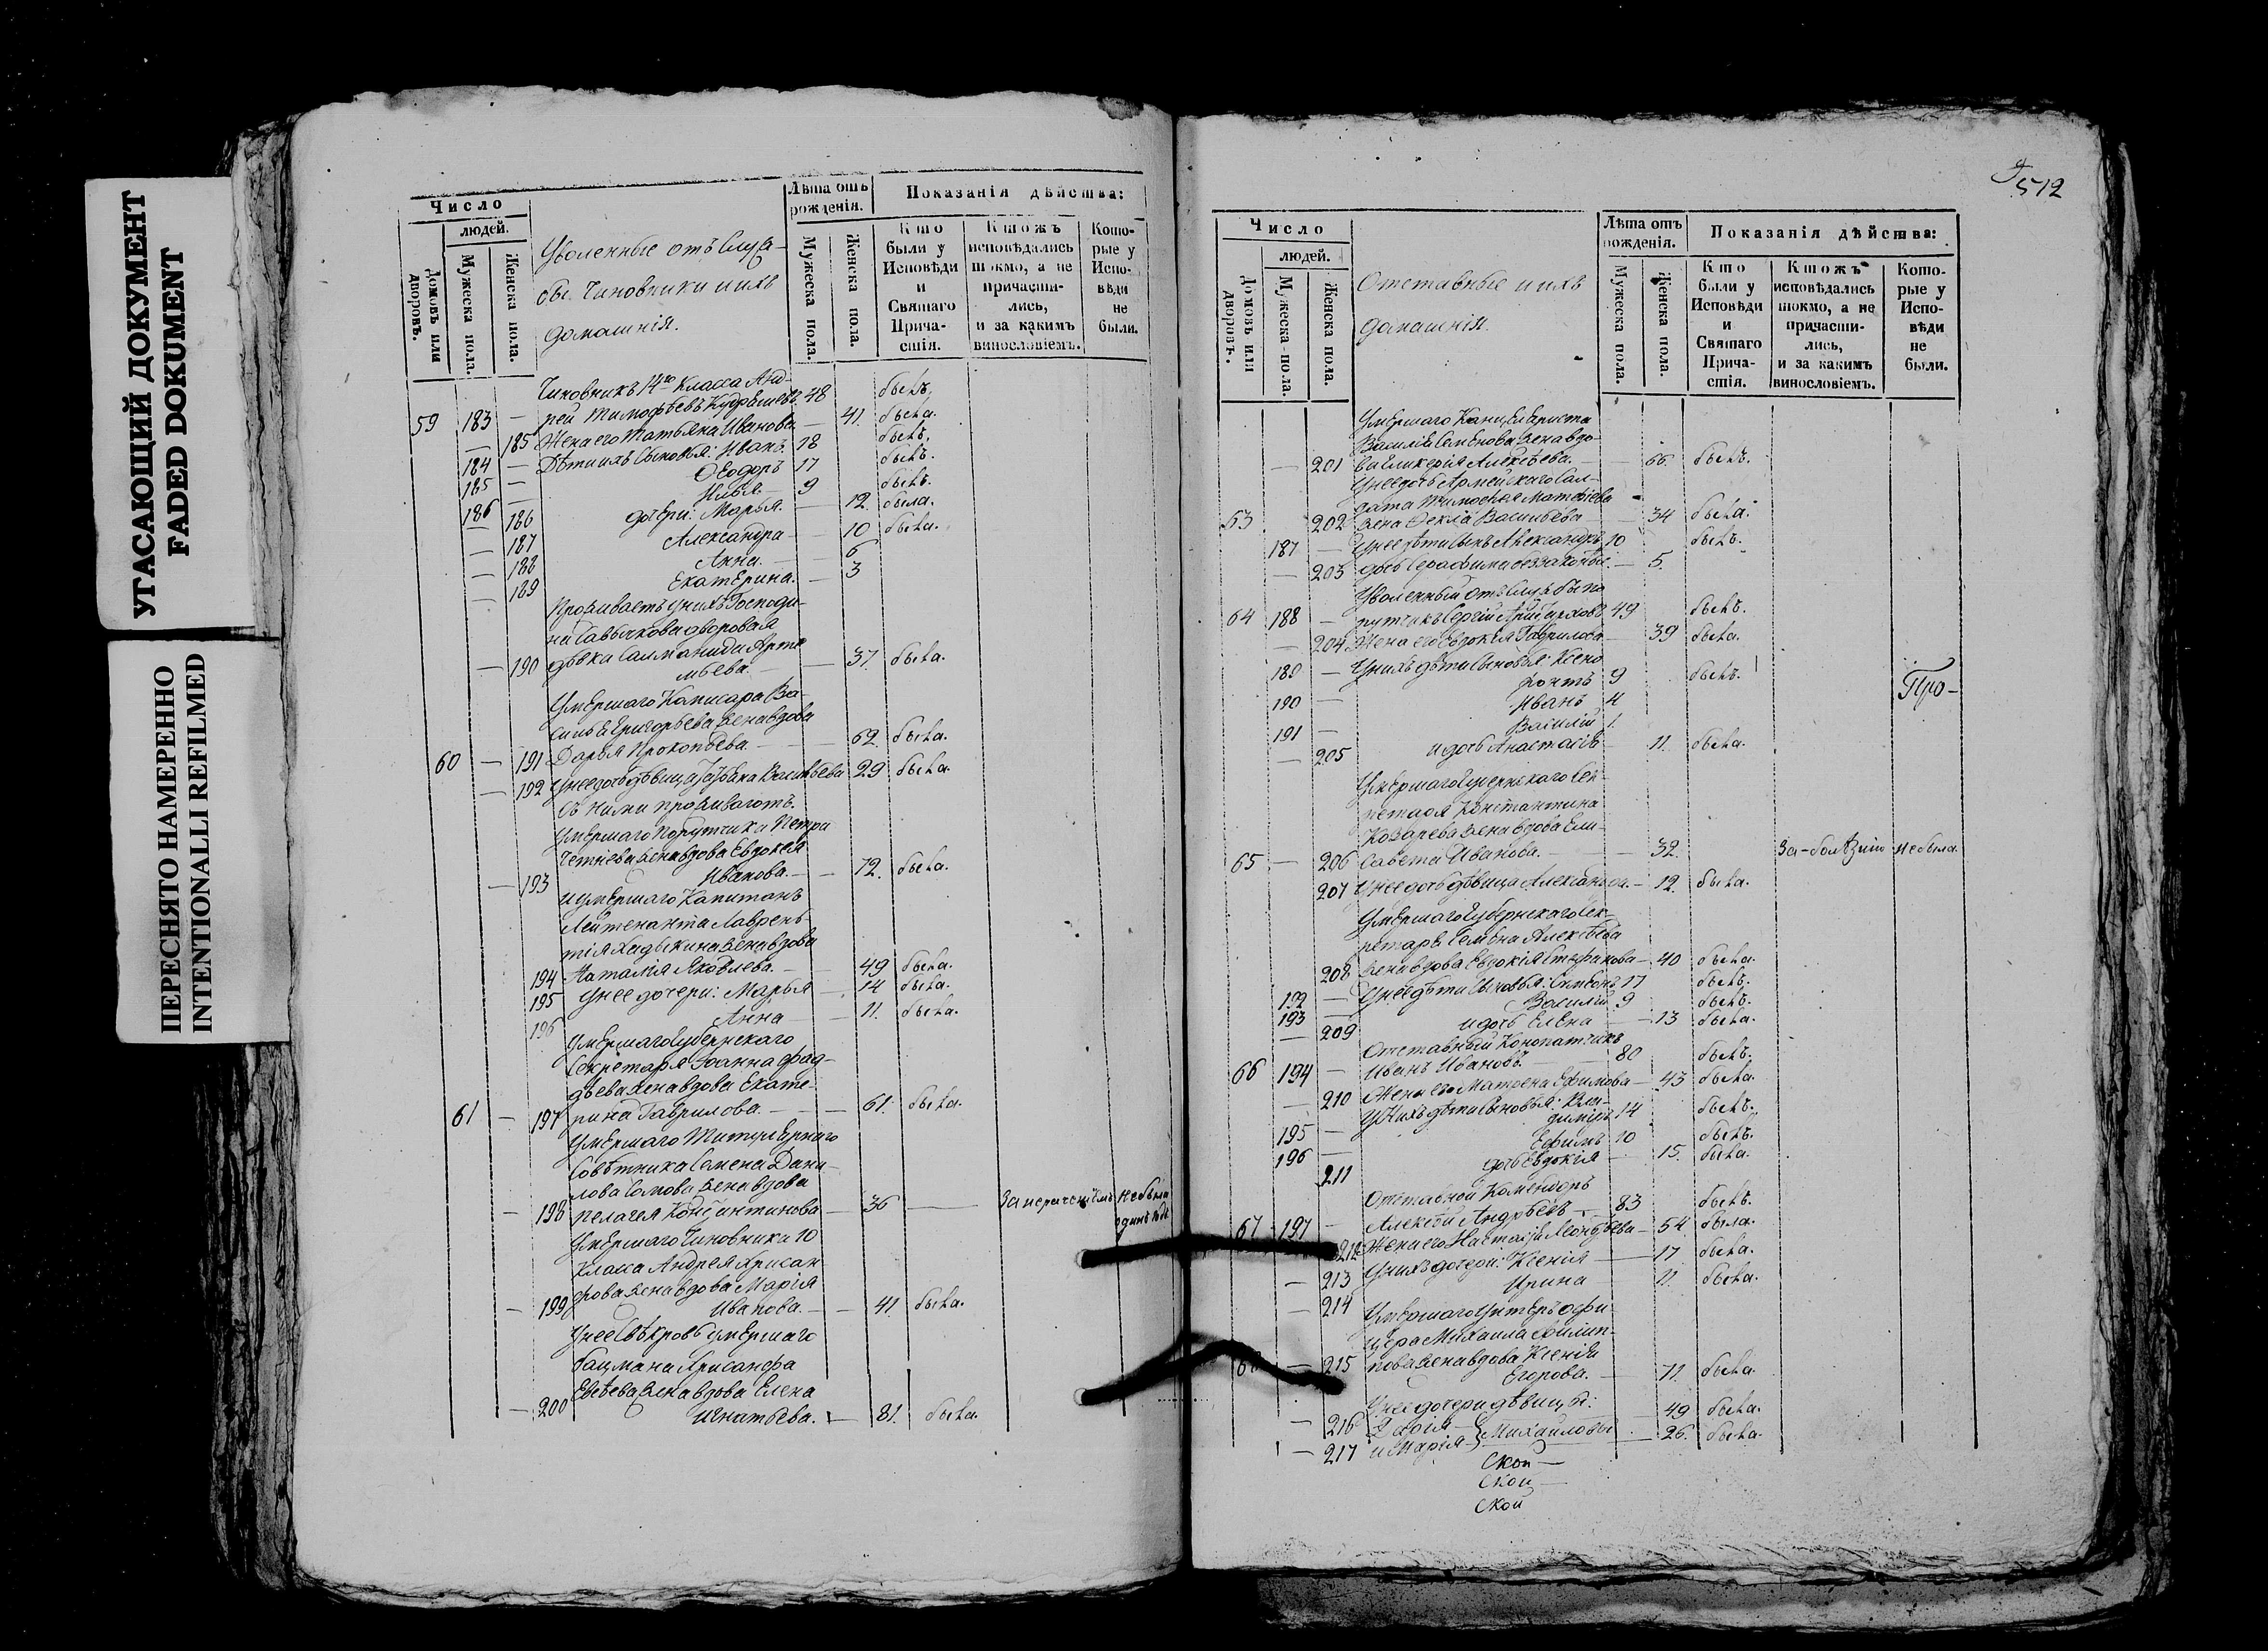 УГАСАЮЩИЙ ДОКУМЕНТ
FADED DOKUMENT
ПЕРЕСНЯТО НАМЕРЕННО
INTENTIONALLI REFILMED
Число
людей.
Домовъ или дворовъ.
Мужеска пола.
Женска пола.
Уволенные отъ служ-
бы. Чиновники и ихъ
домашнія.
Лѣта отъ рожденія.
Мужеска пола.
Женска пола.
Показанія дѣйства:
Кто были у Исповѣди и Святаго Прича-стія.
Ктожъ исповѣдались токмо, а не причасти-лись, и за какимъ винословіемъ.
Кото-рые у Испо-вѣди не были.
Чиновникъ 14го Класса Анд-
59 183 — рей Тимофѣевъ 48 былъ.
— 185 Жена его Татьяна Иванова — 41. была.
184 — Дѣти ихъ Сыновья: Иванъ 18 былъ.
185 — Ѳеодоръ 17 былъ.
186 — Илья — 9 былъ.
— 186 дочери: Марья. — 12. была.
— 187 Александра — 10 была.
— 188 Анна. — 6
— 189 Екатерина. — 3
Проживаетъ у нихъ Господи-
на дворовая
— 190 дѣвка Арте
мьева. — 37. была.
Умершаго Комисара Ва-
силья Григорьева жена вдова
60 — 191 Дарья Прокопьева. — 62. была.
— 192 У нее дочь дѣвица Васильева 29 была.
Съ ними проживаютъ.
Умершаго Порутчика Петра
жена вдова Евдокея
— 193 Иванова. — 72. была.
и умершаго Капитанъ
Лейтенанта Лаврен-
тія жена вдова
194 Наталія Яковлева. — 49 была.
195 У нее дочери: Марья — 14 была.
196 Анна — 11. была.
Умершаго Губернскаго
Секретаря Іоанна Фад-
дѣева жена вдова Екате-
61 — 197 рина Гаврилова. — 61. была.
Умершаго Титулярнаго
Совѣтника Семена Дани-
лова жена вдова
— 198 Пелагея Константинова — 36 — не была
Умершаго Чиновника 10
Класса Андрея Хрисан
фова жена вдова Марія
— 199 Иванова. — 41 была.
У нее Свѣкровь умершаго
Хрисанфа
жена вдова Елена
— 200 Игнатьева. — 81. была.
512
Число
людей.
Домовъ или дворовъ.
Мужеска пола.
Женска пола.
Отставные и ихъ
домашнія.
Лѣта отъ рожденія.
Мужеска пола.
Женска пола.
Показанія дѣйства:
Кто были у Исповѣди и Святаго Прича-стія.
Ктожъ исповѣдались токмо, а не причасти-лись, и за какимъ винословіемъ.
Кото-рые у Испо-вѣди не были.
Умершаго Канцеляриста
Василія Семенова жена вдо-
— 201 ва Гликерія Алексѣева. — 66. былъ.
У нее дочь Армейскаго Сол-
дата Тимофея Матвѣева
63 202 жена Ѳекла Васильева — 34 была.
187 — У нее дѣти Сынъ Александръ 10 былъ.
— 203 дочь Серафима — 5.
Уволенный отъ службы по
64 188 — рутчикъ Сергій 49 былъ.
— 204 Жена его Евдокія Гаврилова — 39 была.
189 — У нихъ дѣти Сыновья: Ксено
фонтъ 9 былъ.
190 — Иванъ 4
191 — Василій 1.
— 205 и дочь Анастасія — 11. была.
Про-
Умершаго Губернскаго Сек-
ретаря Константина
Козарева жена вдова Ели-
65 — 206 савета Иванова. — 32. За-болѣзнію не была.
207 У нее дочь дѣвица Александра. — 12. была.
Умершаго Губернскаго Сек-
ретаря Семена Алексѣева
208 жена вдова Евдокія — 40 была.
192 — У нее дѣти Сыновья: Симеонъ 17 былъ.
193 — Василій 9 былъ.
— 209 и дочь Елена — 13 была.
Отставный Конопатчикъ
66 194 — Иванъ Ивановъ. 80 былъ.
— 210 Жена его Матрена Ефимова — 43 была.
195 — У нихъ дѣти Сыновья: Вла-
димиръ 14 былъ.
196 — Ефимъ 10 былъ.
211 дочь Евдокія — 15. была.
Отставной Комендоръ
67 197 — Алексѣй Андрѣевъ — 83 былъ.
212 Жена его Настасія Леонтьева — 54. была.
— 213 У нихъ дочери: Ксенія — 17 была.
— 214 Ирина — 11. была.
Умершаго Унтеръ офи-
цера Михаила Филип-
— 215 пова жена вдова Ксенія
Егорова. — 71. была.
У нее дочери дѣвицы:
— 216 Дарія — 49 была.
— 217 и Марія } Михайловы — 26. была.
Ской —
Ской —
Ской